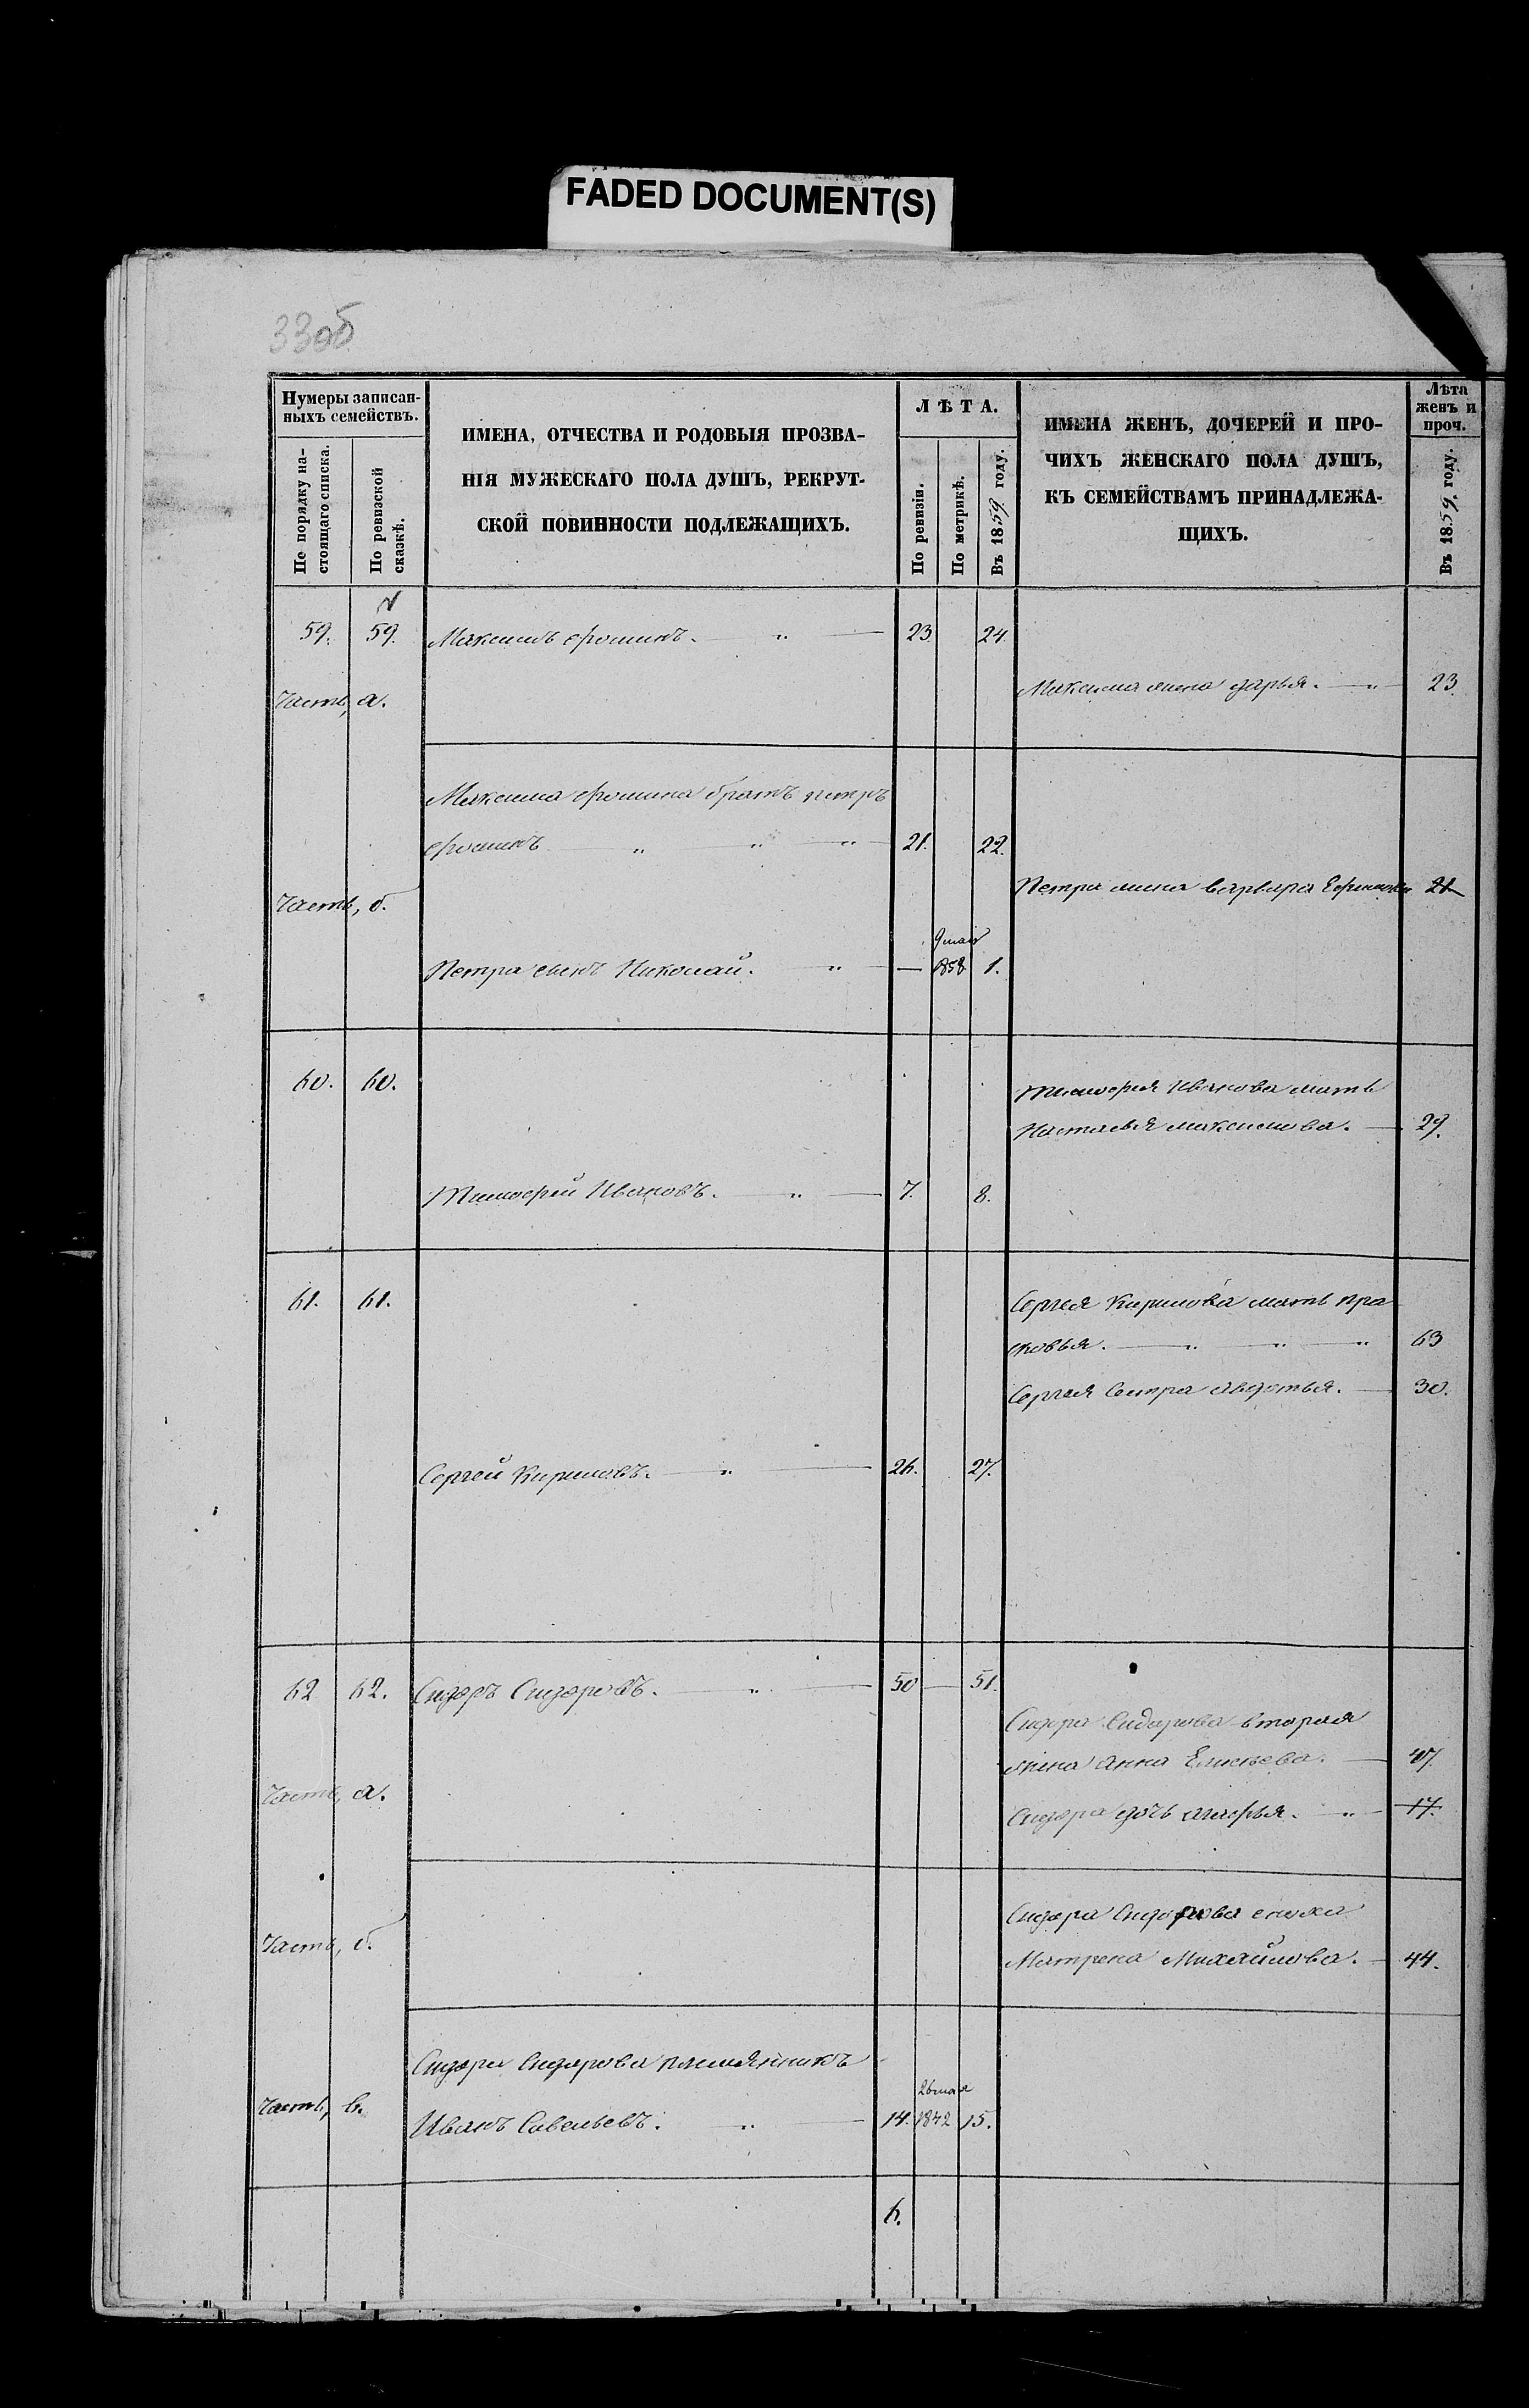 FADED DOCUMENT(S)
33об
Нумеры записан-
ныхъ семействъ.
По порядку на-
стоящаго списка.
По ревизской
сказкѣ.
ИМЕНА, ОТЧЕСТВА И РОДОВЫЯ ПРОЗВА-
НІЯ МУЖЕСКАГО ПОЛА ДУШЪ, РЕКРУТ-
СКОЙ ПОВИННОСТИ ПОДЛЕЖАЩИХЪ.
ЛѢТА.
По ревизіи.
По метрикѣ.
Въ 1859 году.
ИМЕНА ЖЕНЪ, ДОЧЕРЕЙ И ПРО-
ЧИХЪ ЖЕНСКАГО ПОЛА ДУШЪ,
КЪ СЕМЕЙСТВАМЪ ПРИНАДЛЕЖА-
ЩИХЪ.
Лѣта
женъ и
проч.
Въ 1859. году.
59. 59. Максимъ Фоминъ. 23. 24.
Часть, а. Максима жена Дарья. 23.
Максима Фомина братъ Петръ
Фоминъ 21. 22.
Часть, б. Петра жена Варвара 21
9 мая
Петра сынъ Николай. — 1858 1.
60. 60. Тимофея Иванова мать
Настасья Максимова. 29.
Тимофей Ивановъ. 7. 8.
61. 61. Сергея Кирилова мать Пра
сковья. 63
Сергея Сестра Авдотья. 30.
Сергей Кириловъ. 26. 27.
62 62. Сидоръ Сидоровъ. 50 — 51.
Сидора Сидорова вторая
жена Анна Елисеева. 47.
Часть, а. Сидора дочь Агафья. 17.
Сидора Сидорова сноха
Часть, б. Матрена Михайлова. 44.
Сидора Сидорова племянникъ
26 мая
Часть, в. Иванъ Савельевъ. 14. 1842 15.
6.